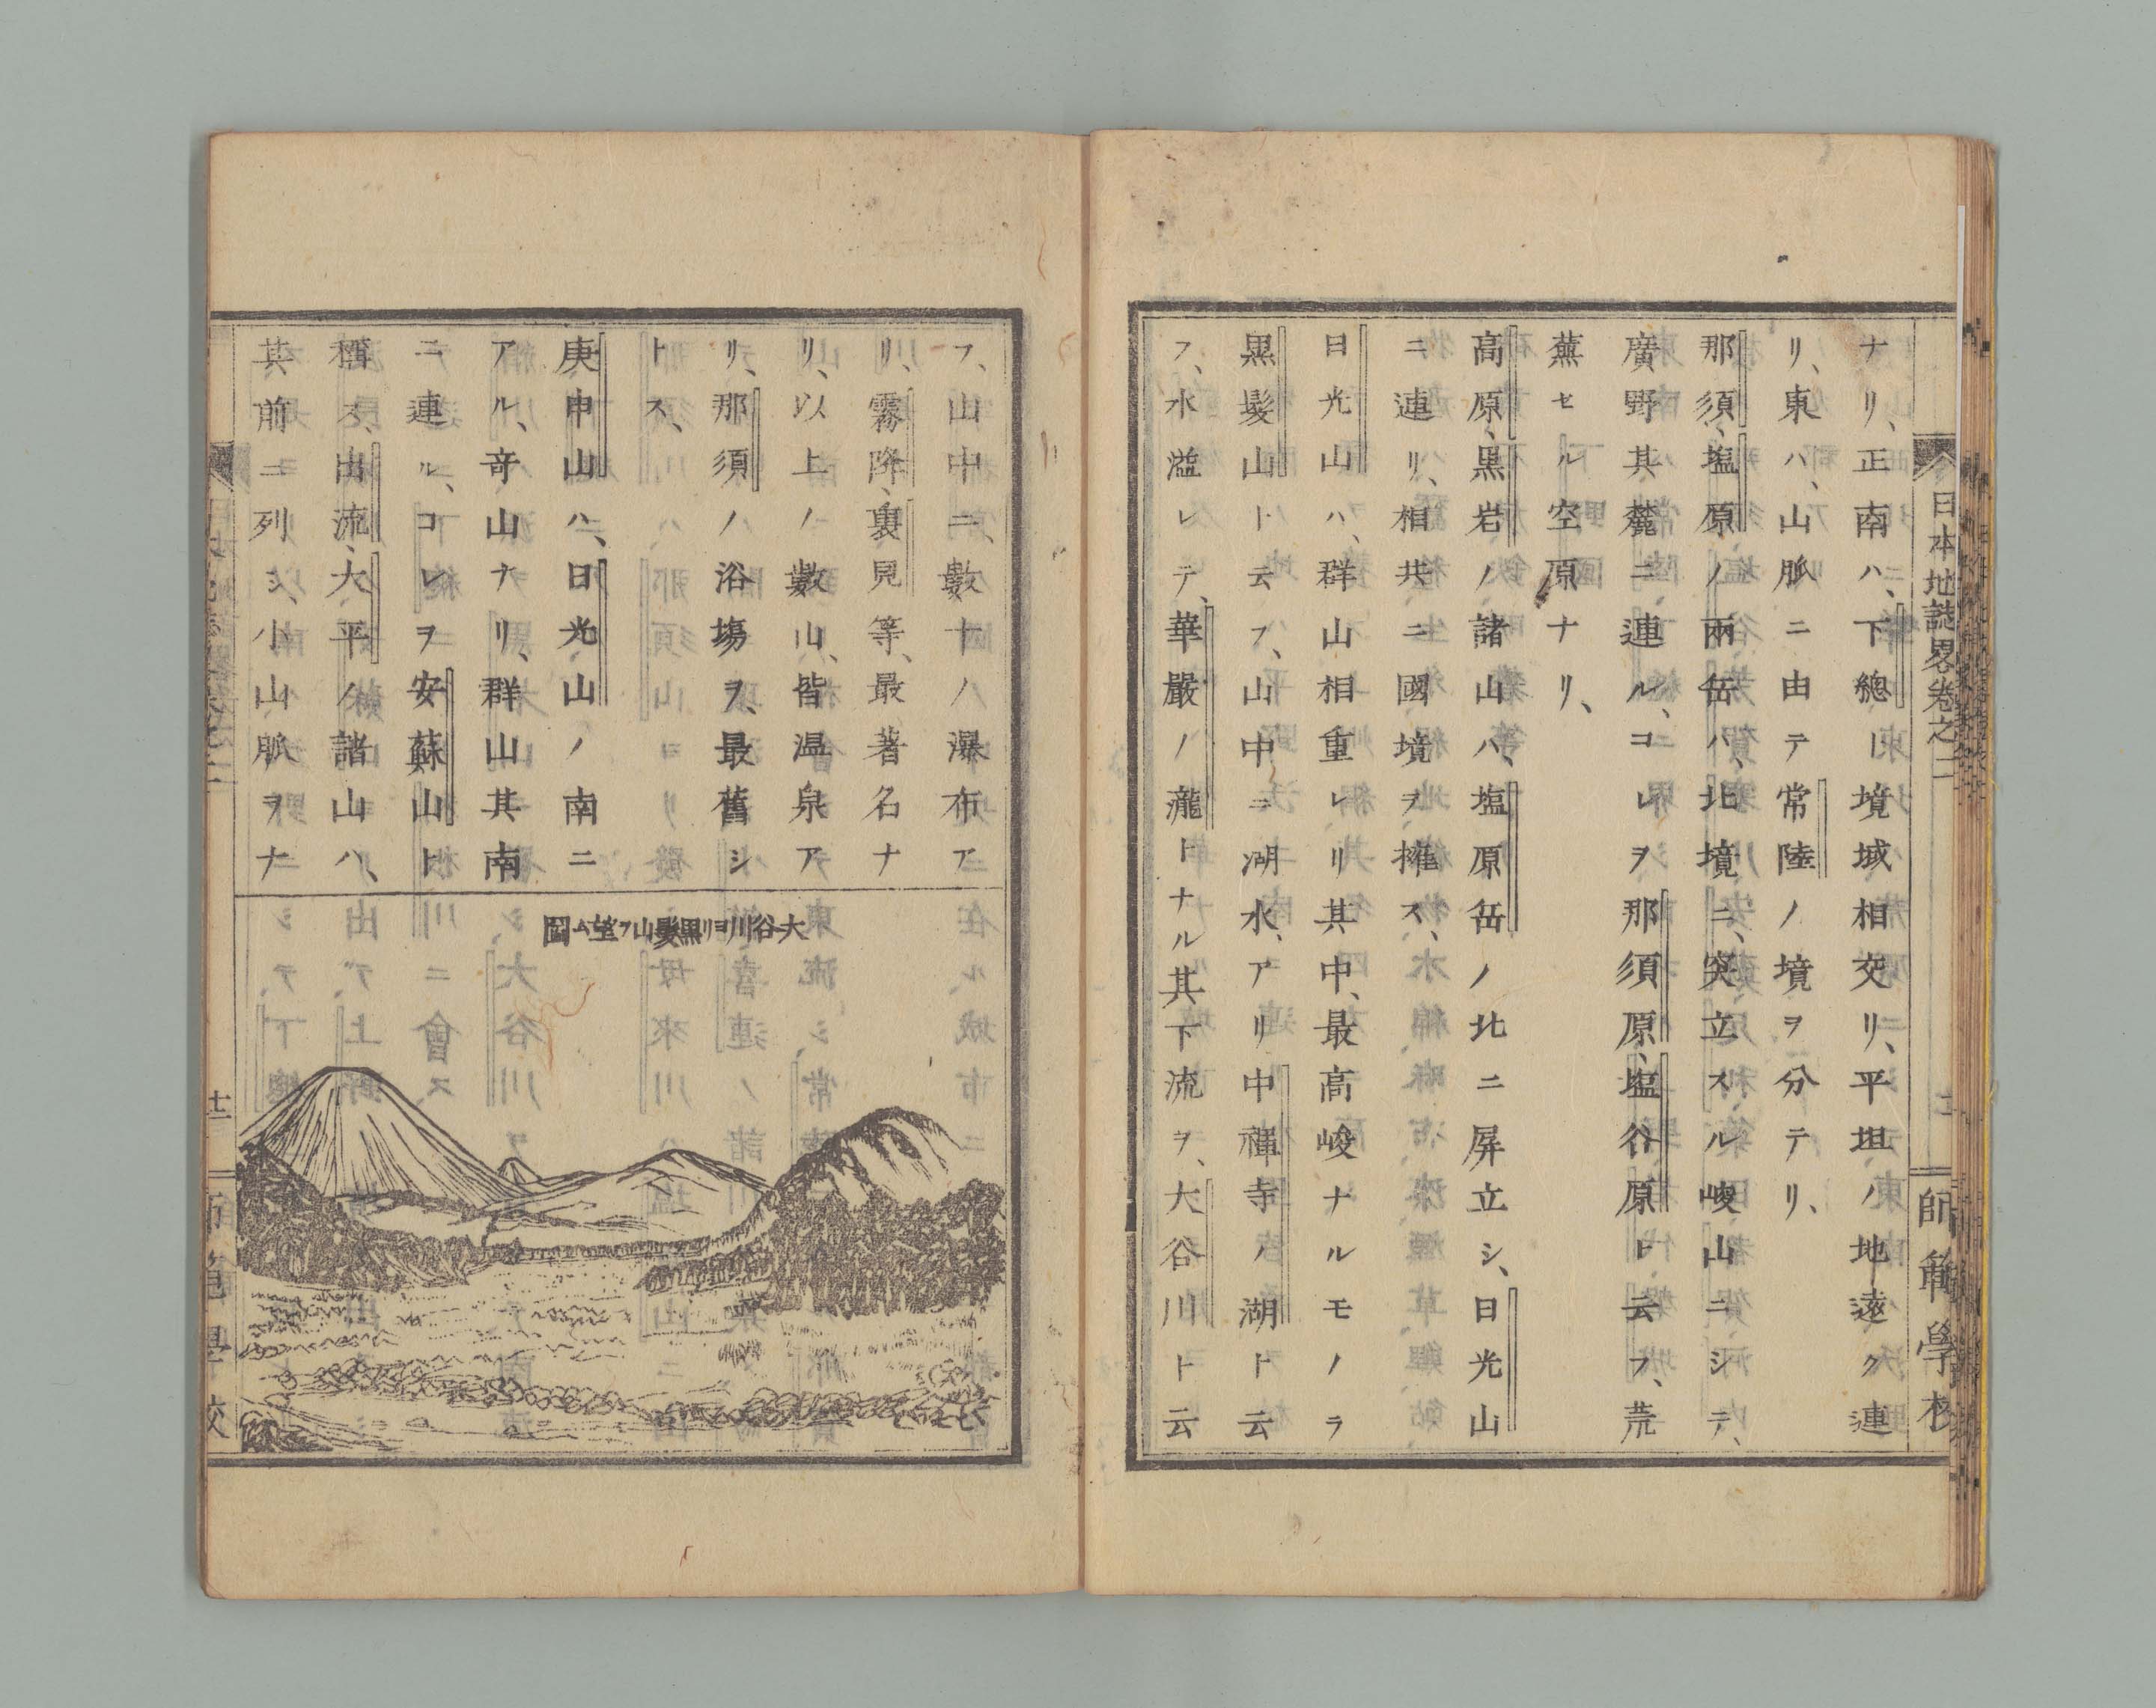 日本地誌畧卷之二
師範學校
ナリ、正南ハ、下總ト境域相交リ、平坦ノ地遠ク連
リ、東ハ、山脈ニ由テ常陸ノ境ヲ分テリ、
那須、塩原ノ兩岳ハ、北境ニ、突立スル峻山ニシテ、
廣野其麓ニ連ル、コレヲ那須原、塩谷原ト云フ、荒
蕪セル空原ナリ、
高原、黒岩ノ諸山ハ、塩原岳ノ北ニ屏立シ、日光山
ニ連リ、相共ニ國境ヲ擁ス、
日光山ハ、群山相重レリ其中、最高峻ナルモノヲ
黒髮山ト云フ、山中ニ湖水、アリ中禪寺ノ湖ト云
フ、水溢レテ、華嚴ノ瀧トナル其下流ヲ、大谷川ト云
フ、山中ニ、數十ノ瀑布ア
リ、霧降、裏見等、最著名ナ
リ、以上ノ數山、皆温泉ア
リ、那須ノ浴塲ヲ、最舊シ
トス、
庚申山ハ、日光山ノ南ニ
アル、奇山ナリ、群山其南
ニ連ル、コレヲ安蘇山ト
稱ス、出流、大平ノ諸山ハ、
其前ニ列シ、小山脈ヲナ
大谷川ヨリ黒髮山ヲ望ム圖
十二